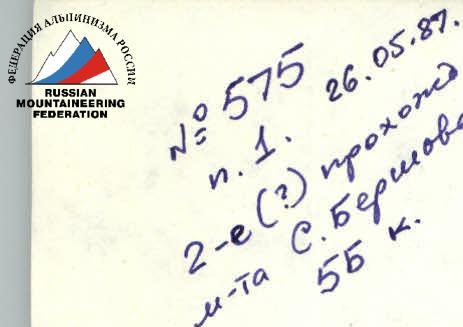 ФЕДЕРАЦИЯ АЛЬПИНИЗМА РОССИИ
RUSSIAN
MOUNTAINEERING
FEDERATION
№ 575
п. 1. 26.05.87.
2-е (?) прохожд
м-та С. Бершова
5Б к.